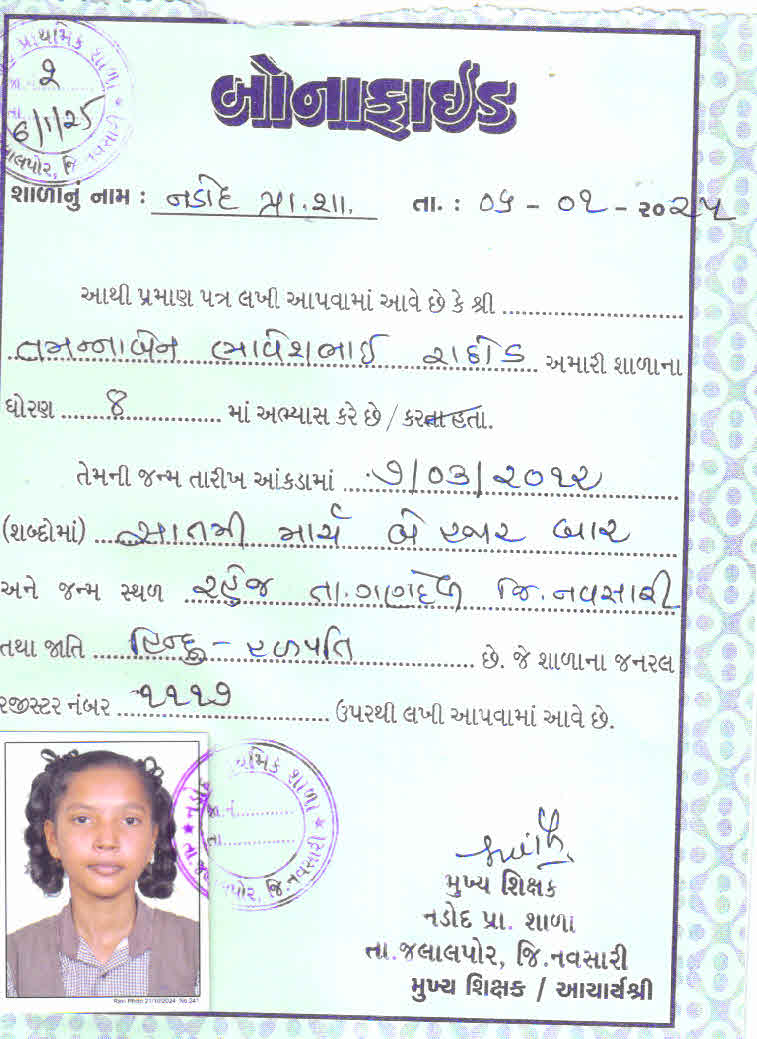 પ્રાથમિક શાળા
જા.નં. 2
તા. 6/1/25
જલાલપોર, જિ. નવસારી
બોનાફાઈડ
શાળાનું નામ : નડોદ પ્રા.શા. તા. : ૦૬ - ૦૧ - ૨૦૨૫
આથી પ્રમાણ પત્ર લખી આપવામાં આવે છે કે શ્રી
તમન્નાબેન ભાવેશભાઈ રાઠોડ અમારી શાળાના
ધોરણ ૪ માં અભ્યાસ કરે છે / કરતા હતા.
તેમની જન્મ તારીખ આંકડામાં ૭/૦૩/૨૦૧૨
(શબ્દોમાં) સાતમી માર્ચ બે હજાર બાર
અને જન્મ સ્થળ રહેજ તા.ગણદેવી જિ.નવસારી
તથા જાતિ હિન્દુ - હળપતિ છે. જે શાળાના જનરલ
રજીસ્ટર નંબર ૧૧૧૭ ઉપરથી લખી આપવામાં આવે છે.
નડોદ પ્રાથમિક શાળા
જા.નં.
તા.
જલાલપોર, જિ.નવસારી
મુખ્ય શિક્ષક
નડોદ પ્રા. શાળા
તા.જલાલપોર, જિ.નવસારી
મુખ્ય શિક્ષક / આચાર્યશ્રી
Ravi Photo 21/10/2024 No.241